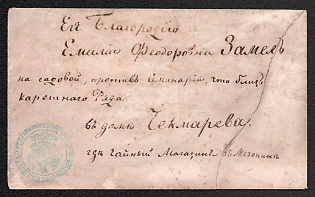 Ея Благородію
Емиліи Феодоровна Замель
на садовой, противъ что близъ
каретнаго Ряда
въ домѣ Чекмарева.
гдѣ Чайный Магазинъ въ Мезонинѣ